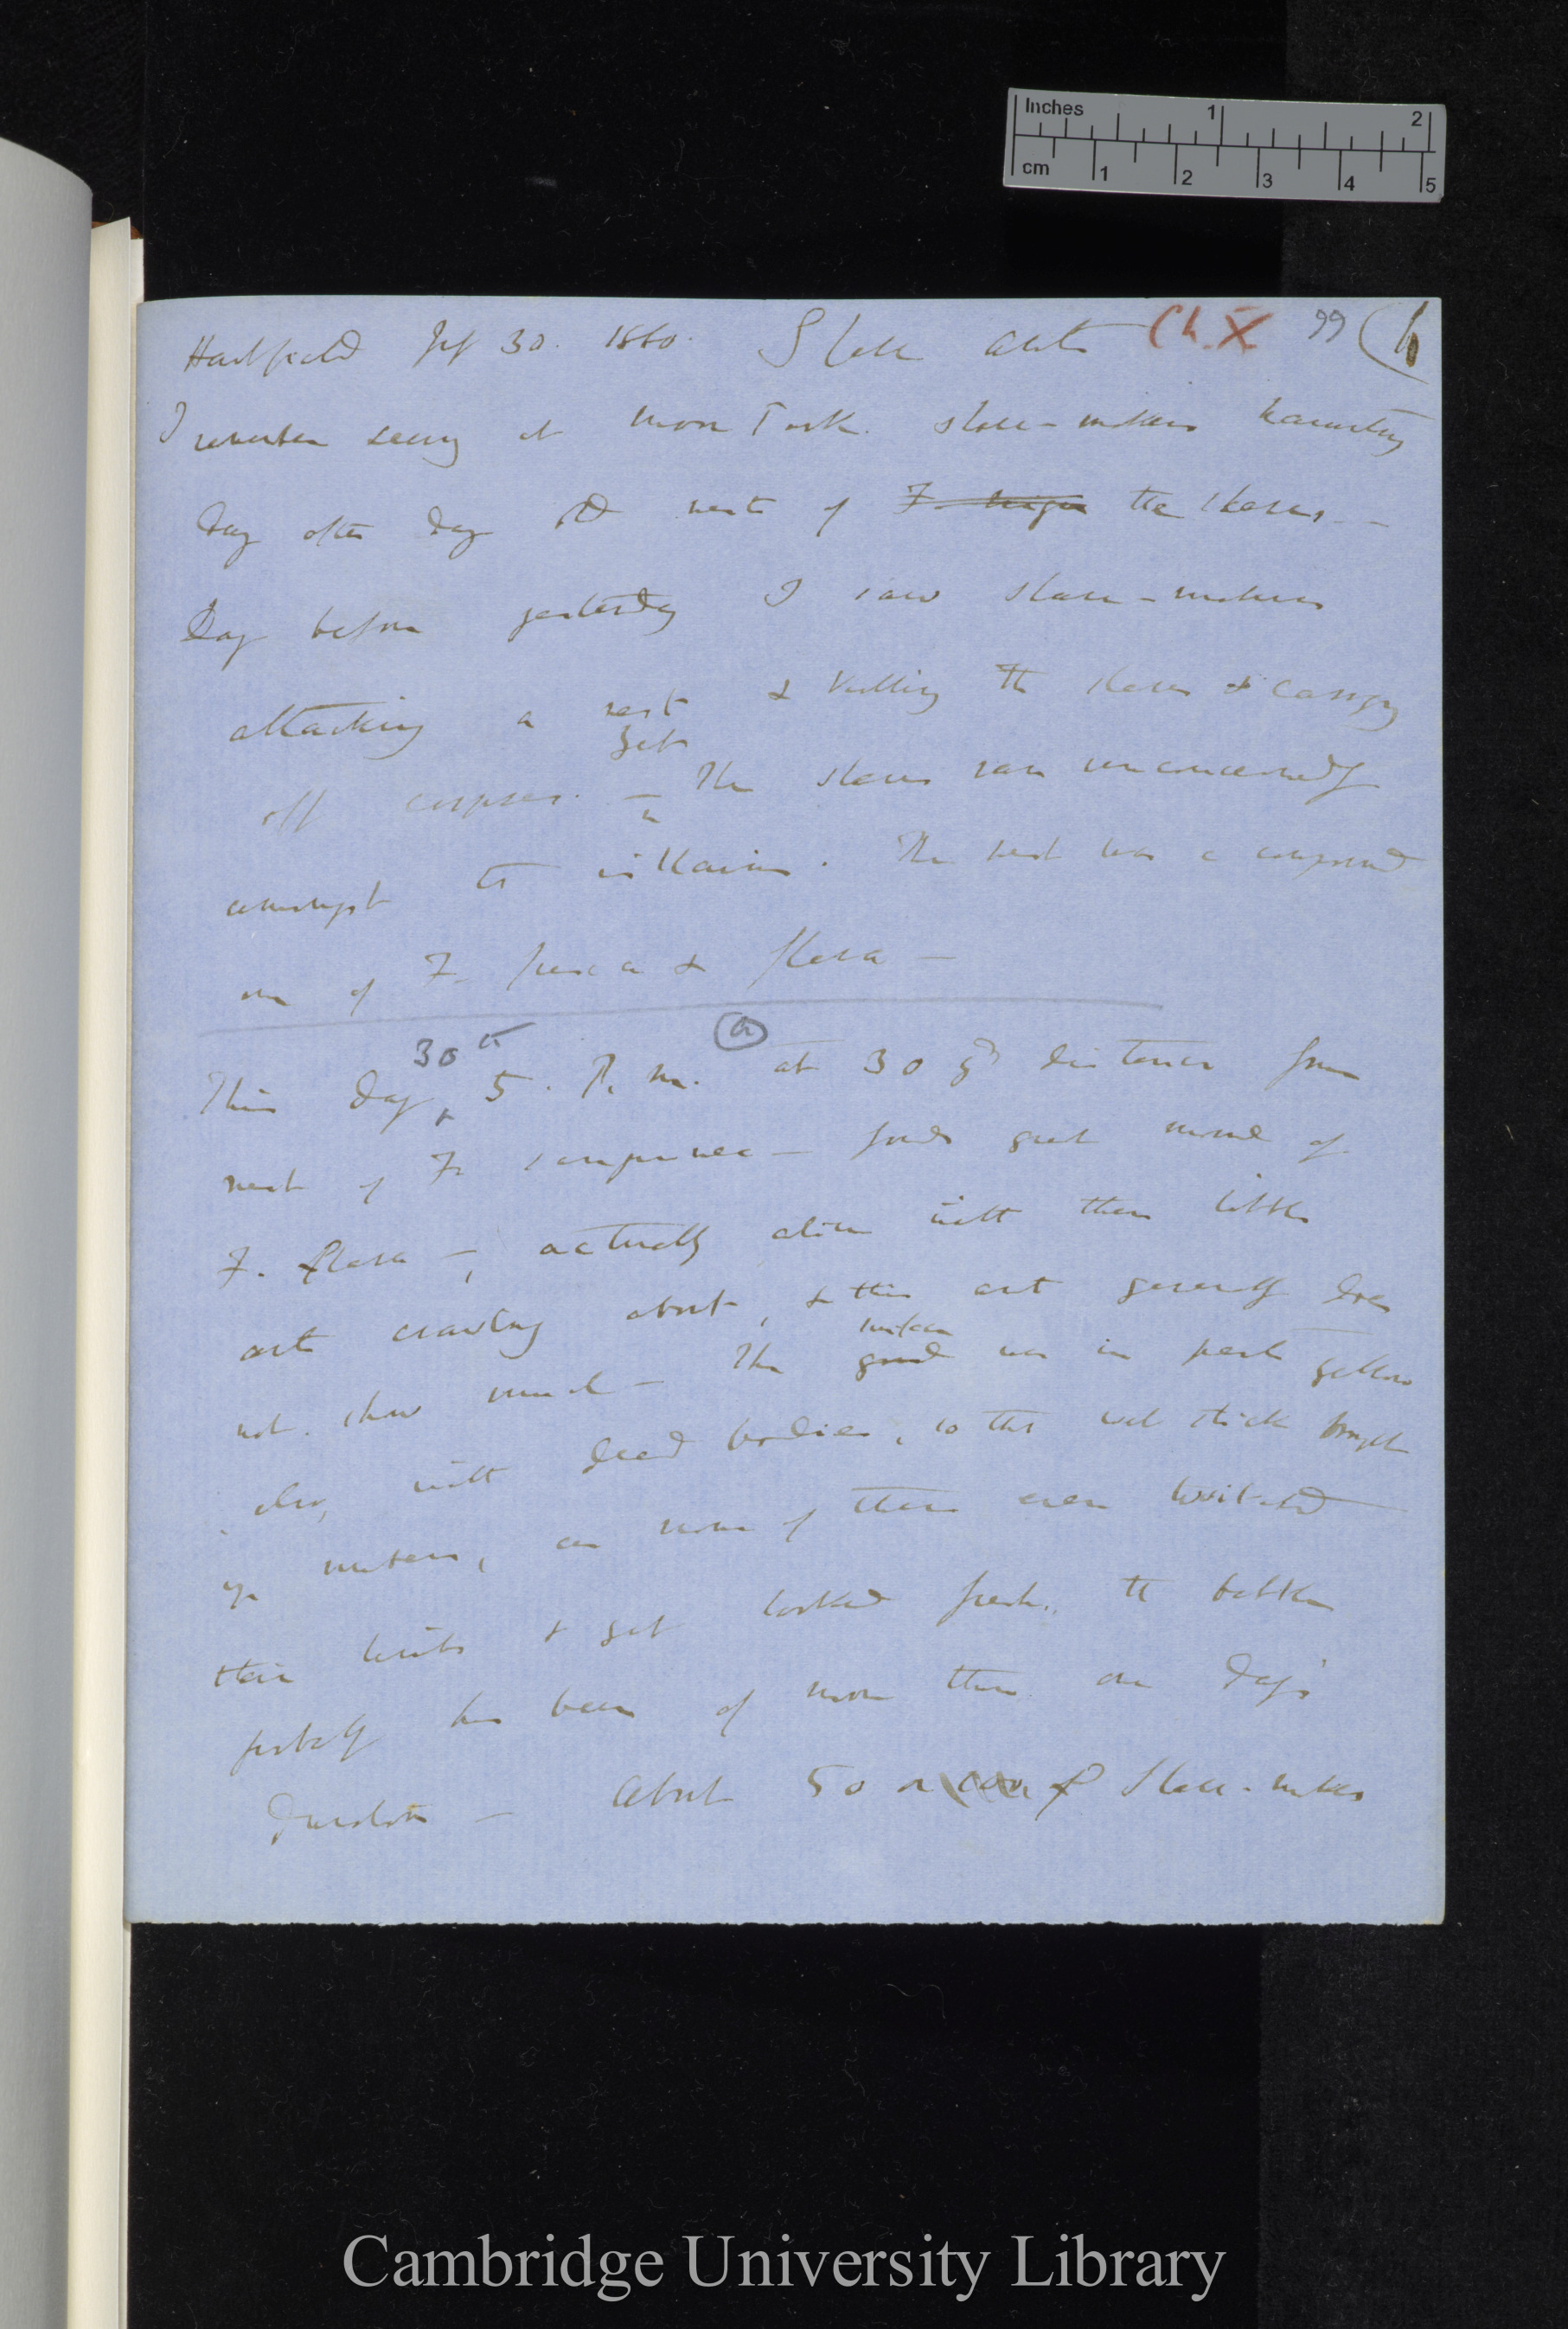 Inches 1 2
cm 1 2 3 4 5
Hartfield July 30. 1860. Slave ants Ch. X 99 (h
I remember seeing at Moor Park. slave-makers haunting
day after day the nest of F. nigra the slaves. —
Day before yesterday I saw slave-makers
attacking a nest & killing the slaves & carrying
off corpses. — yet The slaves ran unconcernedly
amongst the villains. The nest was a compound
one of F. fusca & flava —
(a)
This day 30th 5. P.m. at 30 yds distance from
nest of F. sanguinea — found great mound of
F. flava —, actually alive with these little
ants crawling about, & this ant generally does
not show much — The surface ground was in part yellow
also, with dead bodies, so that wet stick brought
up numbers, as some of them even twitched
their limbs & yet looked fresh. the battle
probably has been of more than one day's
duration — About 50 or of slave-makers
Cambridge University Library